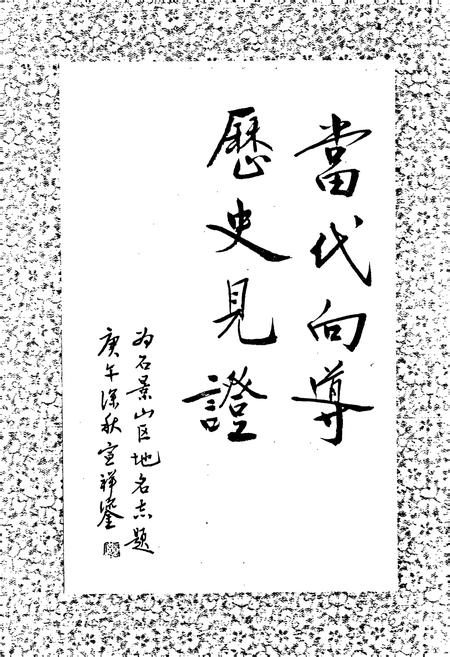 當代向导
歷史見證
为石景山区地名志题
庚午深秋宣祥鎏